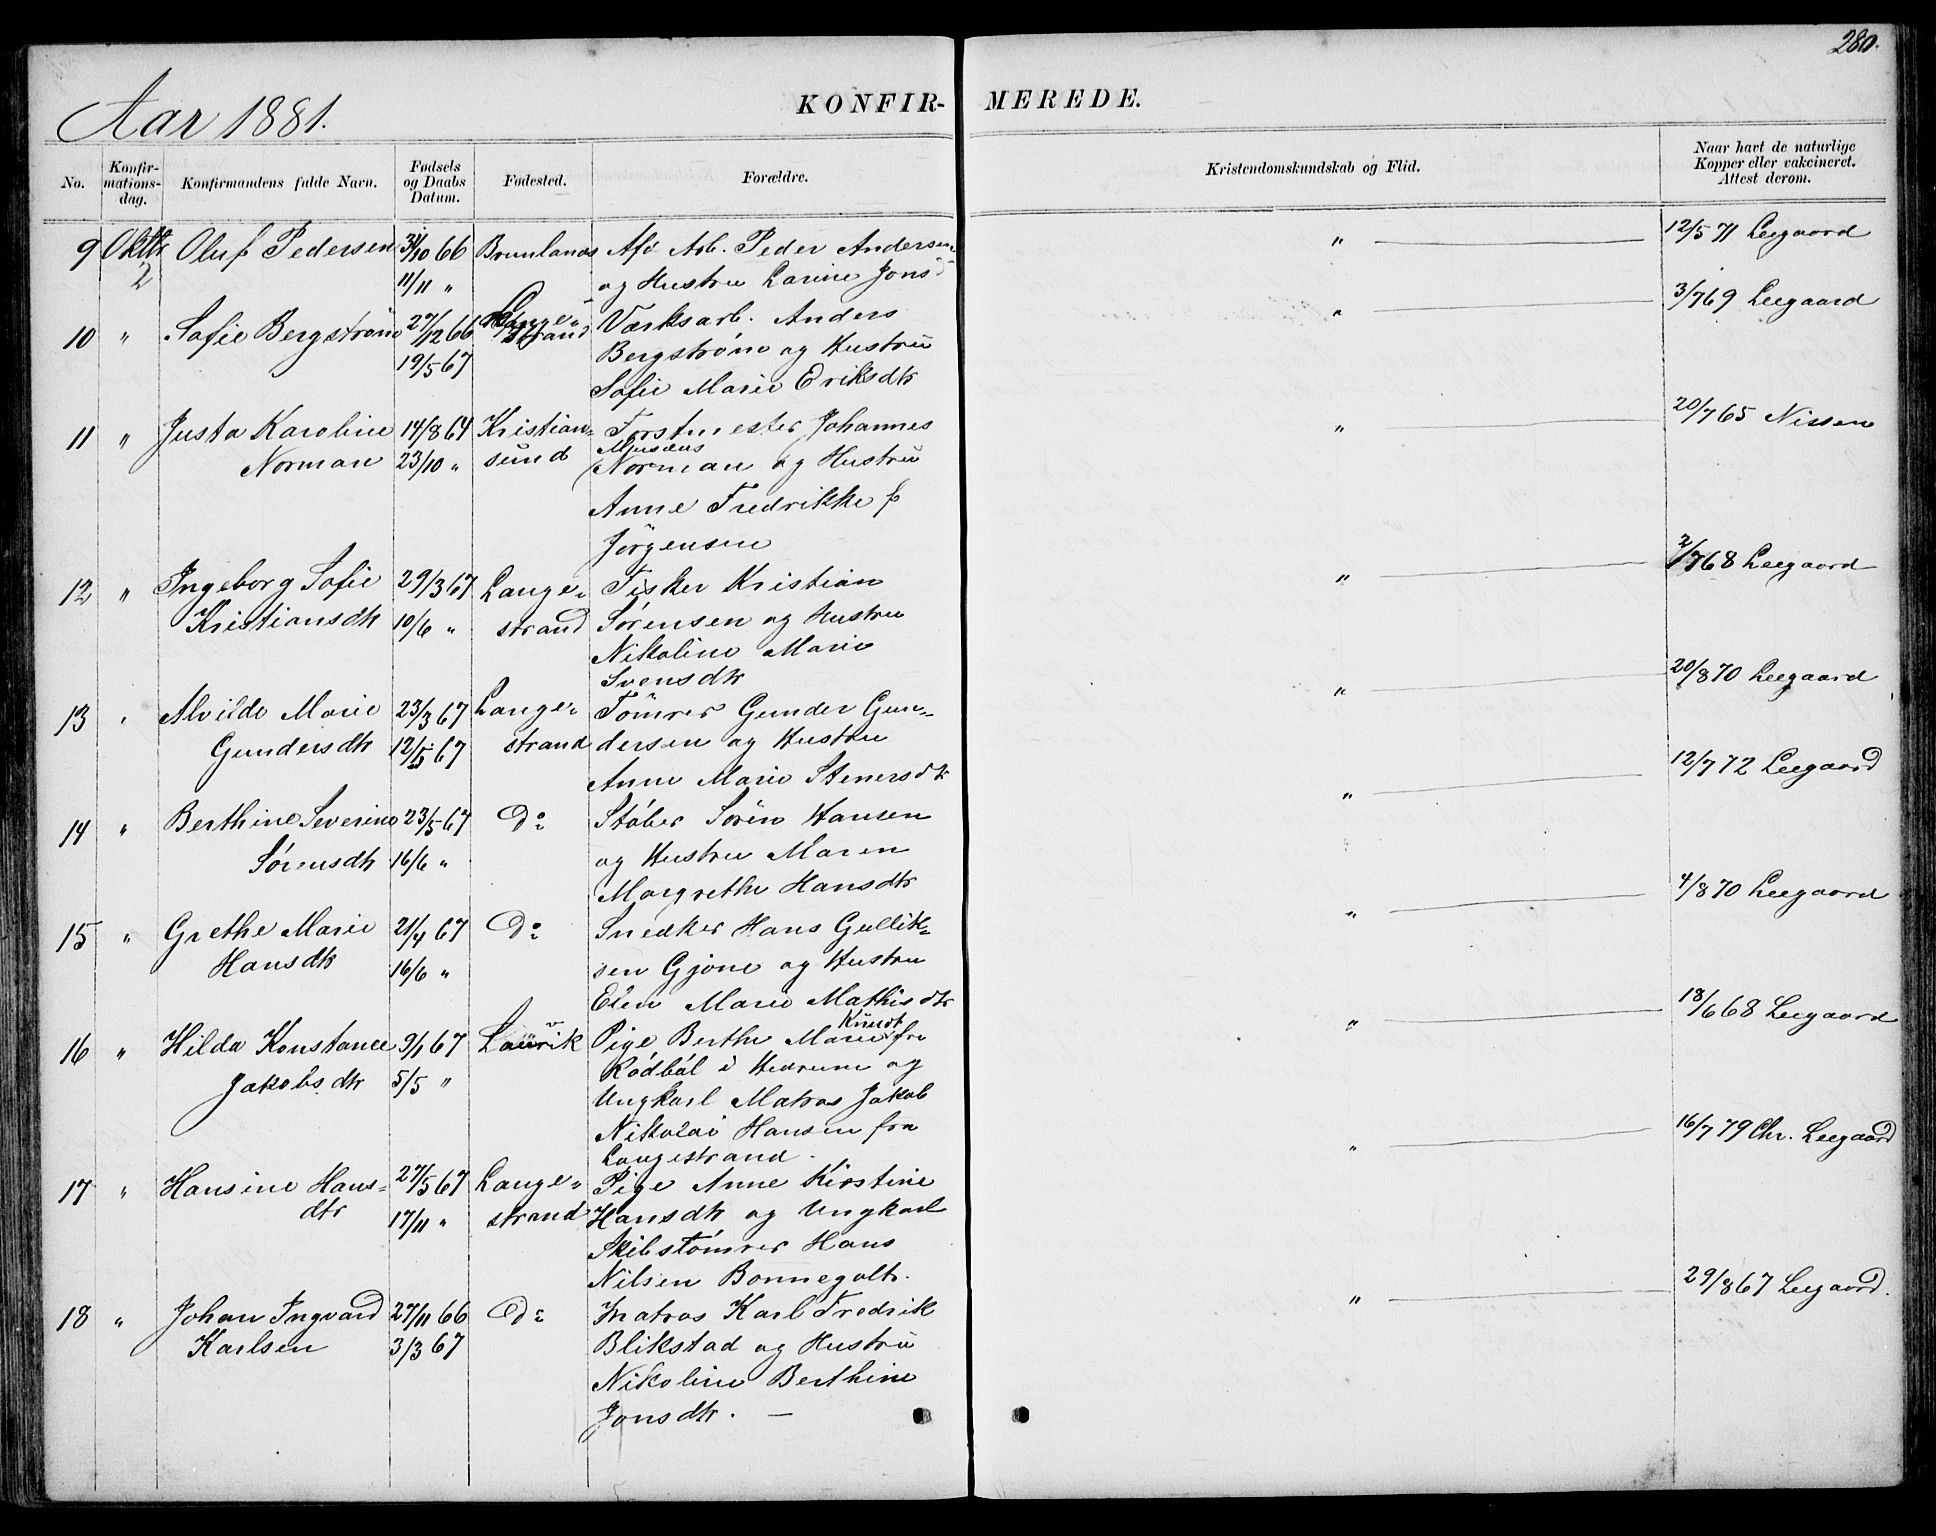 280.
Aar 1881.
KONFIR- MEREDE.
No.
Konfir-
mations-
dag.
Konfirmandens fulde Navn.
Fødsels
og Daabs
Datum.
Fødested.
Forældre.
Kristendomskundskab og Flid.
Naar havt de naturlige
Kopper eller vakcineret.
Attest derom.
9 Oktbr Oluf Pedersen 31/10 66 Brunlanæs Afd. Arb. Peder Andersen " 12/5 71 Leegaard
2 11/11 " og Hustru Larine Jonsd
10 " Sofie Bergstrøm 27/12 66 Lange= Værksarb. Anders " 3/7 69 Leegaard
19/5 67 strand Bergstrøm og Hustru
Sofie Marie Eriksdtr
11 " Justa Karoline 14/8 64 Kristian= Forstmester Johannes " 20/7 65 Nissen
Norman 23/10 " sund Norman og Hustru
Anne Fredrikke f
Jörgensen
12 " Ingeborg Sofie 29/3 67 Lange= Fisker Kristian " 2/7 68 Leegaard
Kristiansdtr 10/6 " strand Sørensen og Hustru
Nikoline Marie
Svensdtr
13 " Alvilde Marie 23/3 67 Lange= Tömrer Gunder Gun= " 20/8 70 Leegaard
Gundersdtr 12/5 67 strand dersen og Hustru
Anne Marie Stenersdtr
14 " Berthine Severine 23/5 67 Do Støber Sören Hansen " 12/7 72 Leegaard
Sørensdtr 16/6 " og Hustru Maren
Margrethe Hansdtr
15 " Grethe Marie 21/4 67 Do Snedker Hans Gullik= " 4/8 70 Leegaard
Hansdtr 16/6 " sen Gjone og Hustru
Elen Marie Mathisdtr
16 " Hilda Konstance 9/1 67 Laurvik Pige Berthe Marie Knudt fra " 18/6 68 Leegaard
Jakobsdtr 5/5 " Rödböl i Hedrum og
Ungkarl Matros Jakob
Nikolai Hansen fra
Langestrand.
17 " Hansine Hans= 27/5 67 Lange= Pige Anne Kirstine " 16/7 79 Chr. Leegaard
dtr 17/11 " strand Hansdtr og Ungkarl
Skibstömrer Hans
Nilsen Bonnegolt.
18 " Johan Ingvard 27/11 66 Do Matros Karl Fredrik " 29/8 67 Leegaard.
Karlsen 3/3 67 Blikstad og Hustru
Nikoline Berthine
Jonsdtr. —